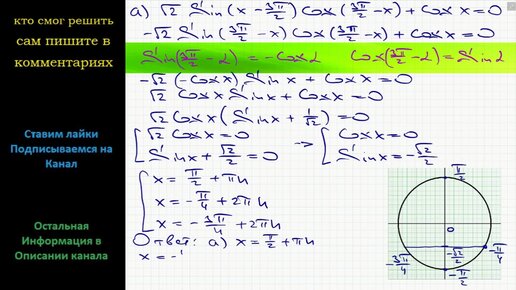 кто смог решить
сам пишите в
комментариях
Ставим лайки
Подписываемся на
Канал
Остальная
Информация в
Описании канала
а) √2 Sin(x - 3π/2) Cos(3π/2 - x) + Cos x = 0
-√2 Sin(3π/2 - x) Cos(3π/2 - x) + Cos x = 0
Sin(3π/2 - α) = -Cos α Cos(3π/2 - α) = -Sin α
-√2 (-Cos x) Sin x + Cos x = 0
√2 Cos x Sin x + Cos x = 0
√2 Cos x (Sin x + 1/√2) = 0
[ √2 Cos x = 0 → [ Cos x = 0
Sin x + √2/2 = 0 Sin x = -√2/2
[ x = π/2 + πn
x = -π/4 + 2πn
x = -3π/4 + 2πn
Ответ: а) x = π/2 + πn
x = -
π/2
0
-√2/2
-3π/4
-π/4
-π/2